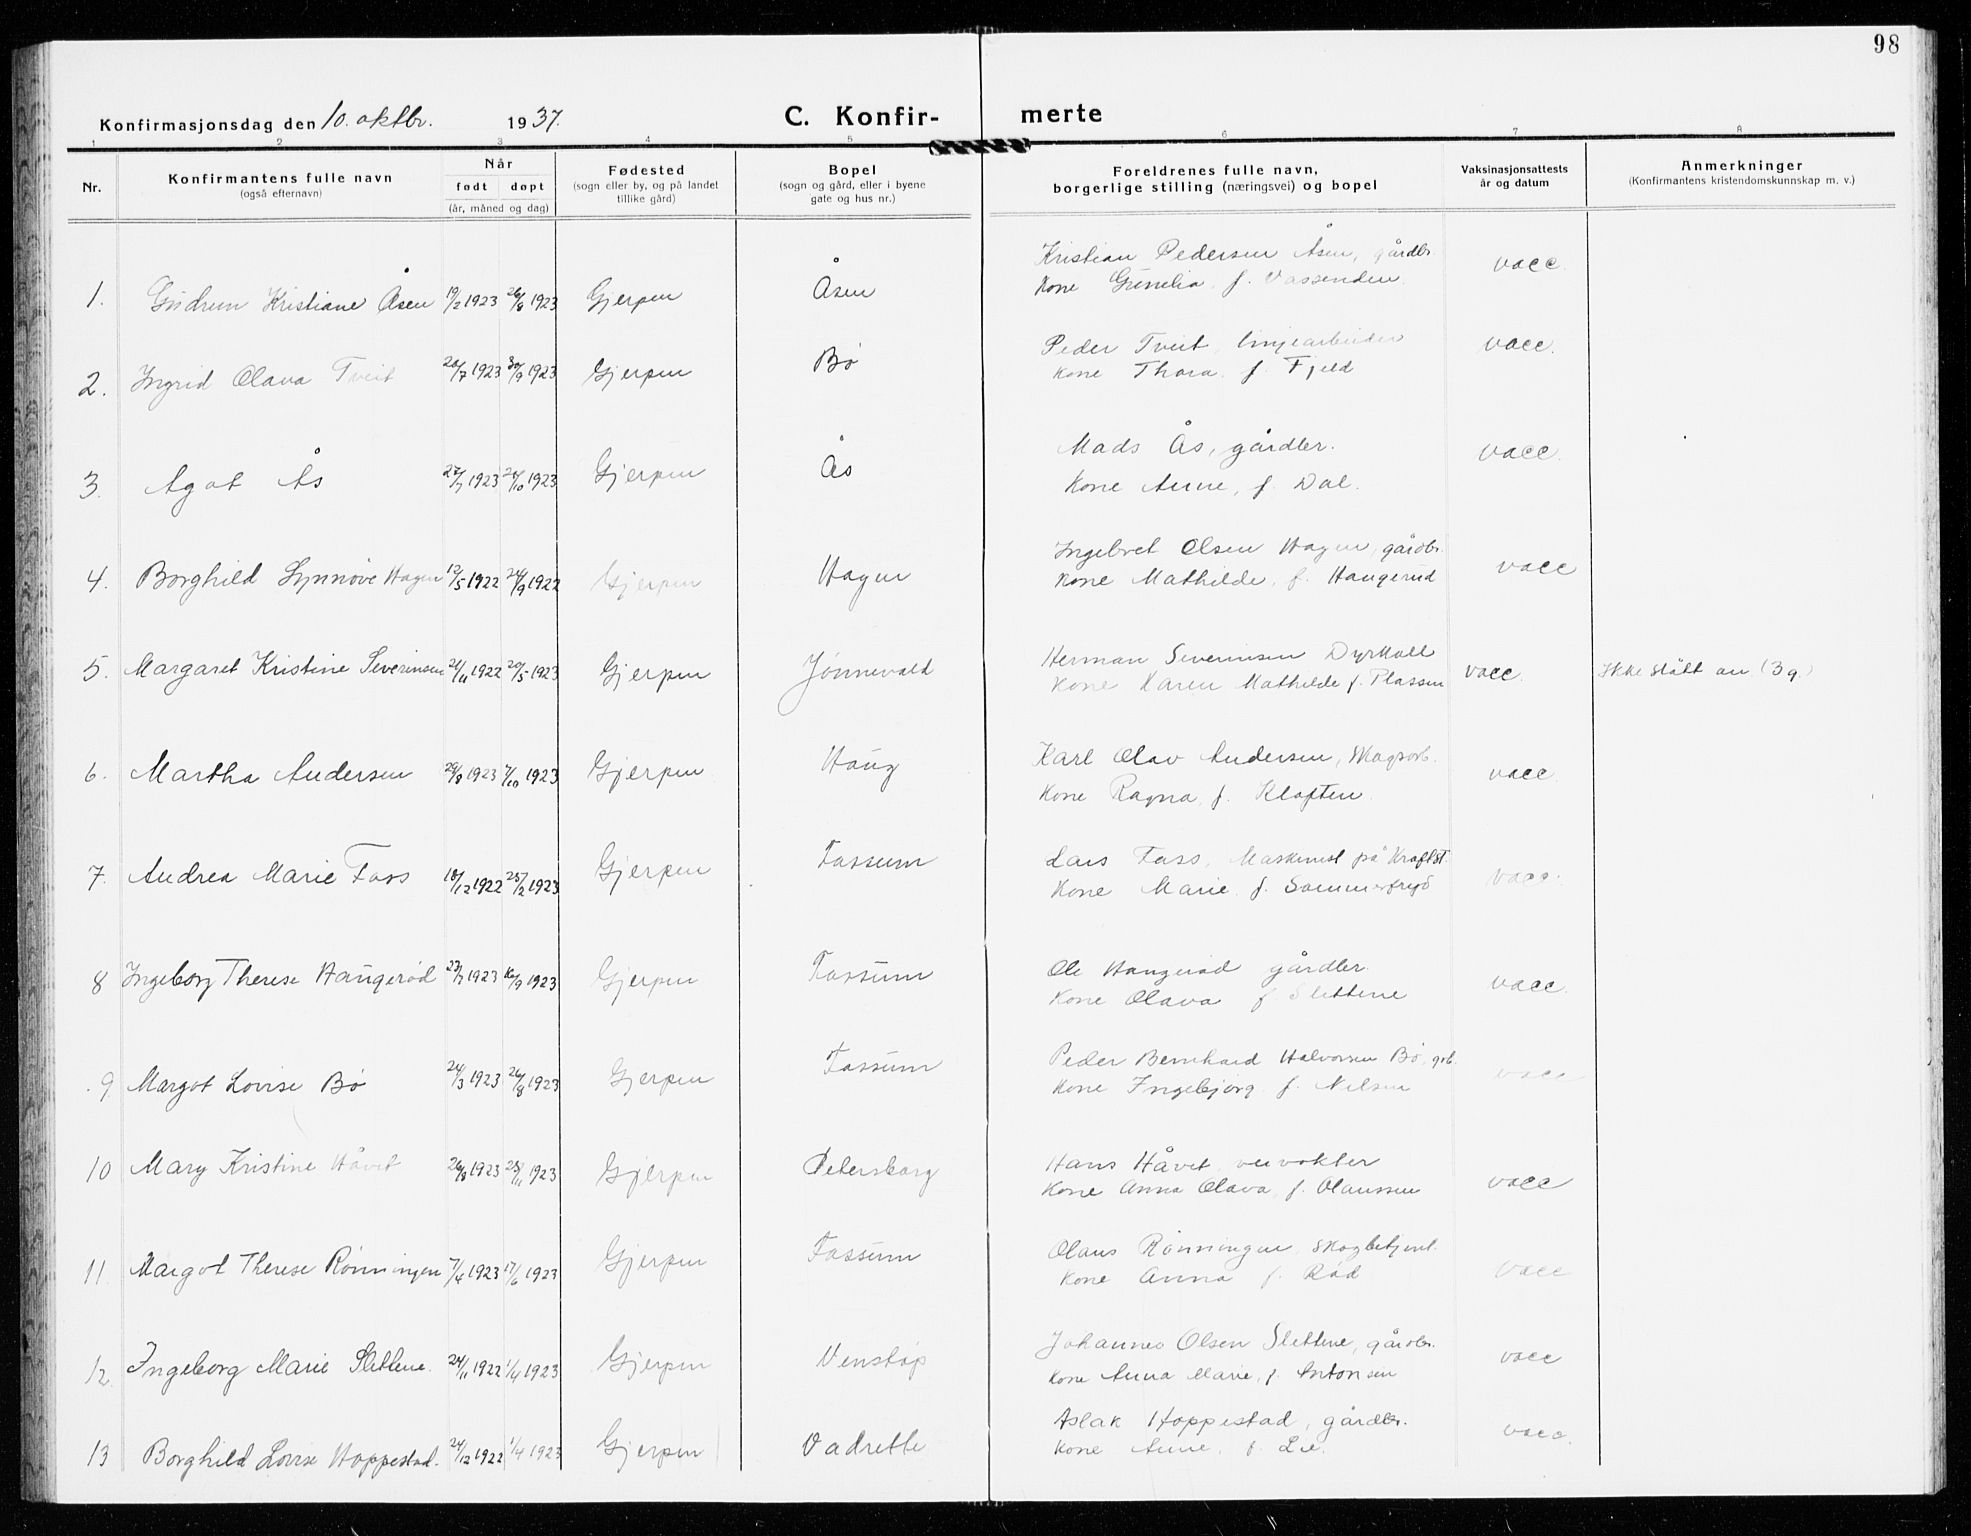 98
Konfirmasjonsdag den 10. oktbr. 1937.
C. Konfir- merte
1 2 3 4 5 6 7 8
Nr.
Konfirmantens fulle navn
(også efternavn)
Når
født døpt
(år, måned og dag)
Fødested
(sogn eller by, og på landet
tillike gård)
Bopel
(sogn og gård, eller i byene
gate og hus nr.)
Foreldrenes fulle navn,
borgerlige stilling (næringsvei) og bopel
Vaksinasjonsattests
år og datum
Anmerkninger
(Konfirmantens kristendomskunnskap m. v.)
1. Gudrun Kristiane Åsen 19/2 1923 26/8 1923 Gjerpen Åsen
Kristian Pedersen Åsen, gårdbr.
Kone Gunelia, f. Vassenden.
vacc.
2. Ingrid Olava Tveit 20/7 1923 30/9 1923 Gjerpen Bø
Peder Tveit, linjearbeider
Kone Thora, f. Fjeld
vacc.
3. Agot Ås 1923 1923 Gjerpen Ås
Mads Ås, gårdbr.
Kone Anne, f. Dal.
vacc.
4. Borghild Synnøve Hagen 12/5 1922 24/9 1922 Gjerpen Hagen
Ingebret Olsen Hagen, gårdbr.
Kone Mathilde, f. Haugerud
vacc
5. Margaret Kristine Severinsen 21/11 1922 20/5 1923 Gjerpen Jønnevald
Herman Severinsen Dyrkoll
Kone Karen Mathilde f. Plassen
vacc.
Ikke stått an (3 g.)
6. Martha Andersen 29/8 1923 7/10 1923 Gjerpen Haug
Karl Olav Andersen, skogsarb.
Kone Ragna, f. Kloften.
vacc.
7. Andrea Marie Foss 18/12 1922 25/2 1923 Gjerpen Fossum
Lars Foss, Maskinist på Kraftst.
Kone Marie, f. Sommerfryd
vacc.
8 Ingeborg Therese Haugerød 23/7 1923 16/9 1923 Gjerpen Fossum
Ole Haugerød gårdbr.
Kone Olava f. Slettene
vacc.
9. Margot Lovise Bø 24/3 1923 26/8 1923 Gjerpen Fossum
Peder Bernhard Halvorsen Bø, grb.
Kone Ingebjørg f. Nilsen
vacc
10 Mary Kristine Håvet 26/8 1923 25/11 1923 Gjerpen Petersborg
Hans Håvet, veivokter
Kone Anna Olava, f. Olaussen
vacc
11. Margot Therese Rønningen 7/4 1923 17/6 1923 Gjerpen Fossum
Olaus Rønningen, skogbetjent.
Kone Anna f. Rød
vacc
12. Ingeborg Marie Slettene. 24/11 1922 1/4 1923 Gjerpen Venstøp
Johannes Olsen Slettene, gårdbr.
Kone Anna Marie, f. Antonsen
vacc
13 Borghild Lovise Hoppestad. 24/12 1922 1/4 1923 Gjerpen Vadrette
Aslak Hoppestad, gårdbr.
Kone Anne, f. Lie.
vacc.